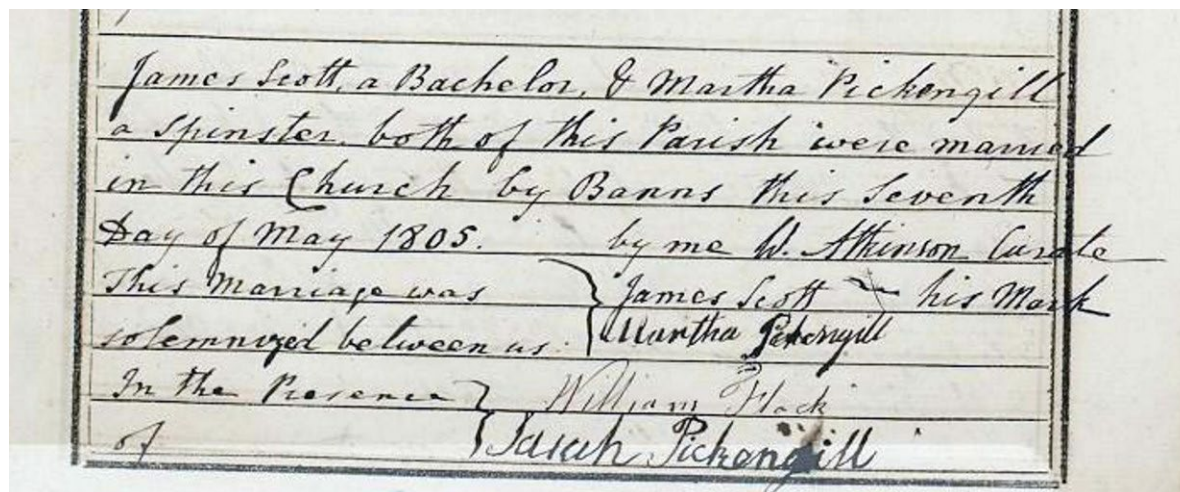 James Scott, a Bachelor, & Martha Pickengill
a Spinster, both of this Parish were married
in this Church by Banns this Seventh
Day of May 1805. by me W. Atkinson Curate
This Marriage was } James Scott his Mark
solemnized between us } Martha Pickengill
In the Presence } William Flack
of } Sarah Pickengill